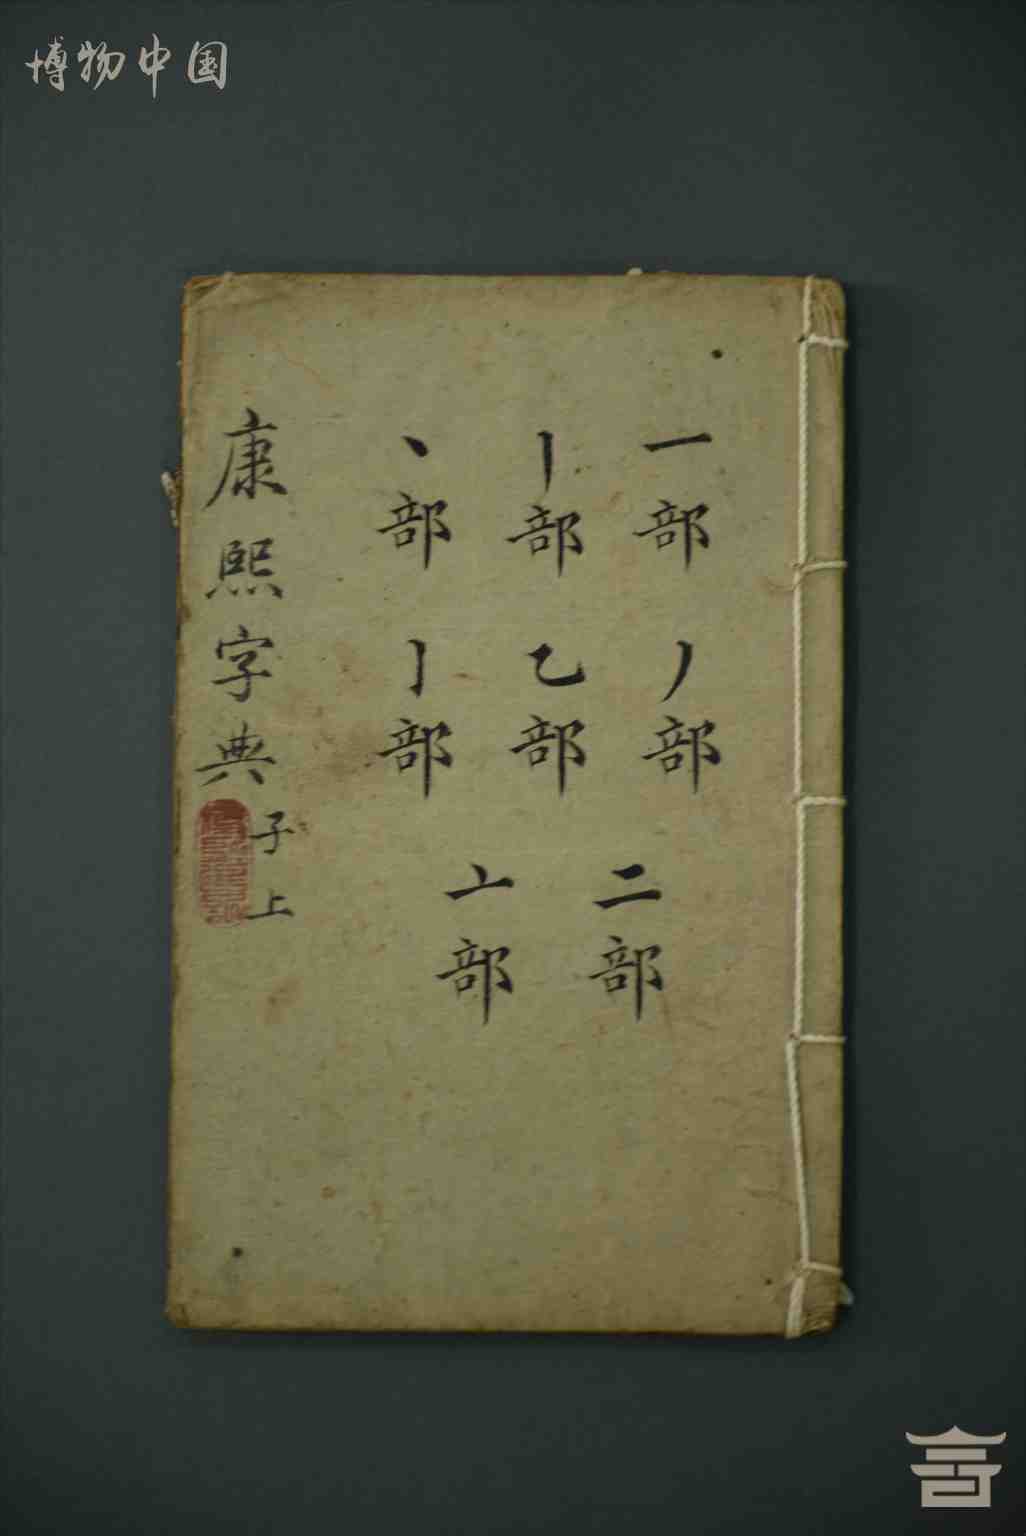 博物中国
一部
丨部
丶部
丿部
乙部
亅部
二部
亠部
康熙字典
子上